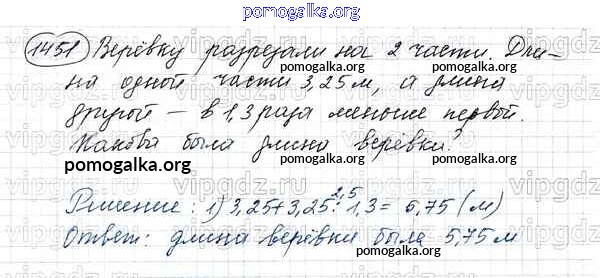 pomogalka.org
1451 Верёвку разрезали на 2 части. Дли-
на одной части 3,25 м, а длина
другой – в 1,3 раза меньше первой.
Какова была длина верёвки?
pomogalka.org
pomogalka.org
2,5
Решение: 1) 3,25+3,25:1,3= 5,75 (м)
Ответ: длина верёвки была 5,75 м
pomogalka.org
vipgdz.ru